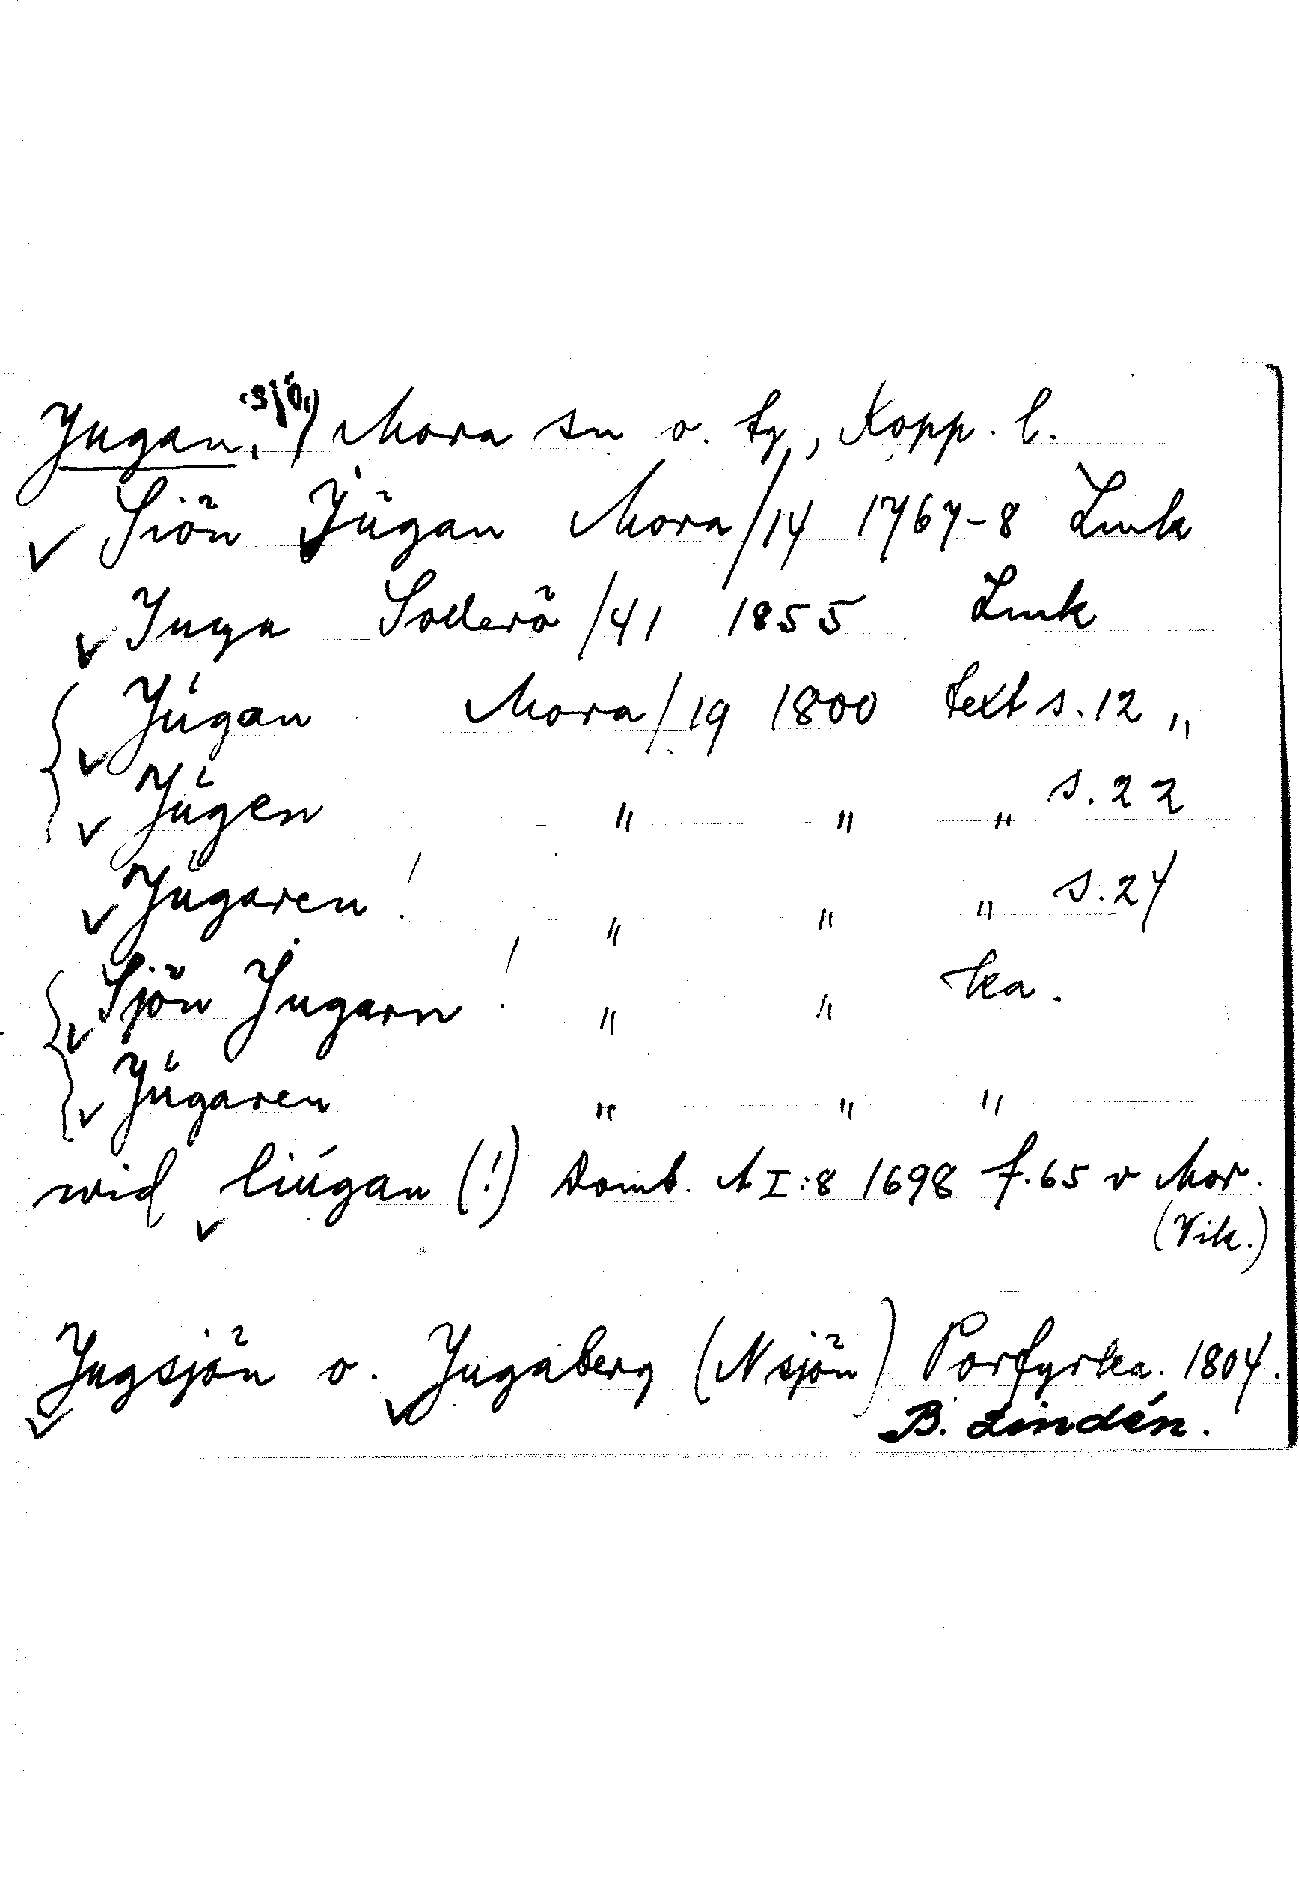 Jugan, sjö, Mora sn o. tg, Kopp. l.
Siön Jügan Mora/14 1767-8 Lmk
Juga Sollerö/41 1855 Lmk
Júgan Mora/19 1800 text s. 12 "
Júgen " " " s. 22
Júgaren! " " " s. 24
Sjön Jugarn! " " ka.
Júgaren " " "
wid liúgan (!) Domb. A I:8 1698 f. 65 v Mor.
(Vik.)
Jugsjön o. Jugaberg (N sjön) Porfyrka. 1804.
B. Lindén.